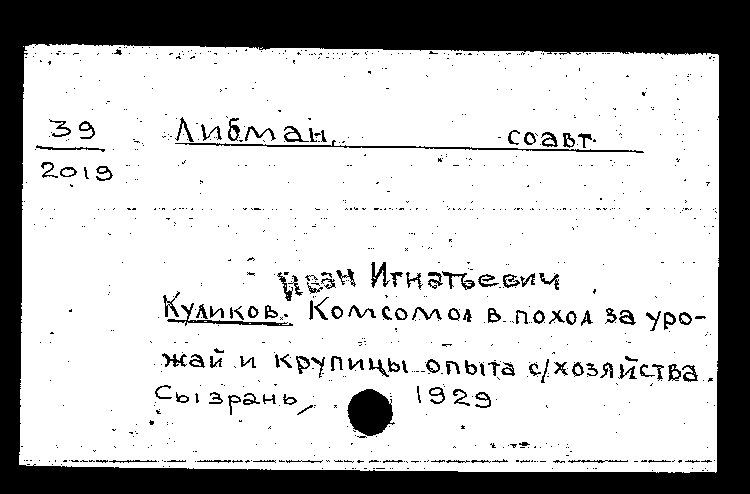 39
2019
Либман, соавт.
Иван Игнатьевич
Куликов. Комсомол в поход за уро-
жай и крупицы опыта с/хозяйства.
Сызрань, 1929